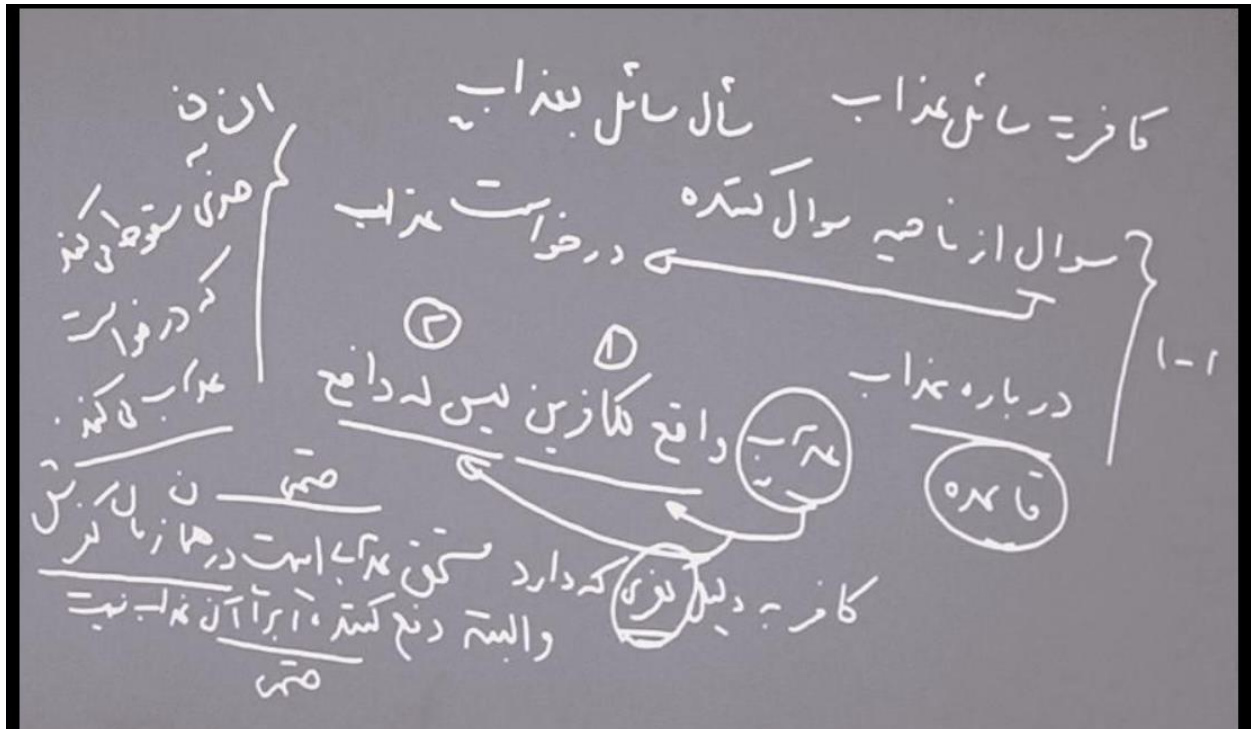 کافر = سائل عذاب سأل سائل بعذاب
سوال از ناحیه سوال کننده درخواست عذاب
۱-۱
درباره عذاب
قاعده
۱ ۲
عذاب واقع للکافرین لیس له دافع
کافر به دلیل کفری که دارد مستحق عذاب است در همان زمان کفرش
حتمی
والبته دفع کننده ای برای آن عذاب نیست
حتمی
انسان
سقوط می کند
که درخواست
عذاب می کند.